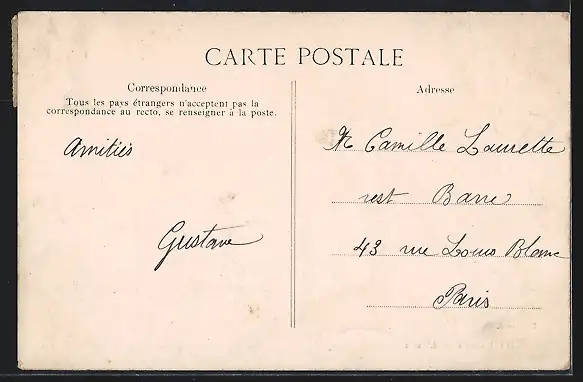 CARTE POSTALE
Correspondance
Tous les pays étrangers n'acceptent pas la
correspondance au recto, se renseigner à la poste.
Amitiés
Gustave
Adresse
Mr Camille Laurette
rest Barre
43 rue Louis Blanc
Paris